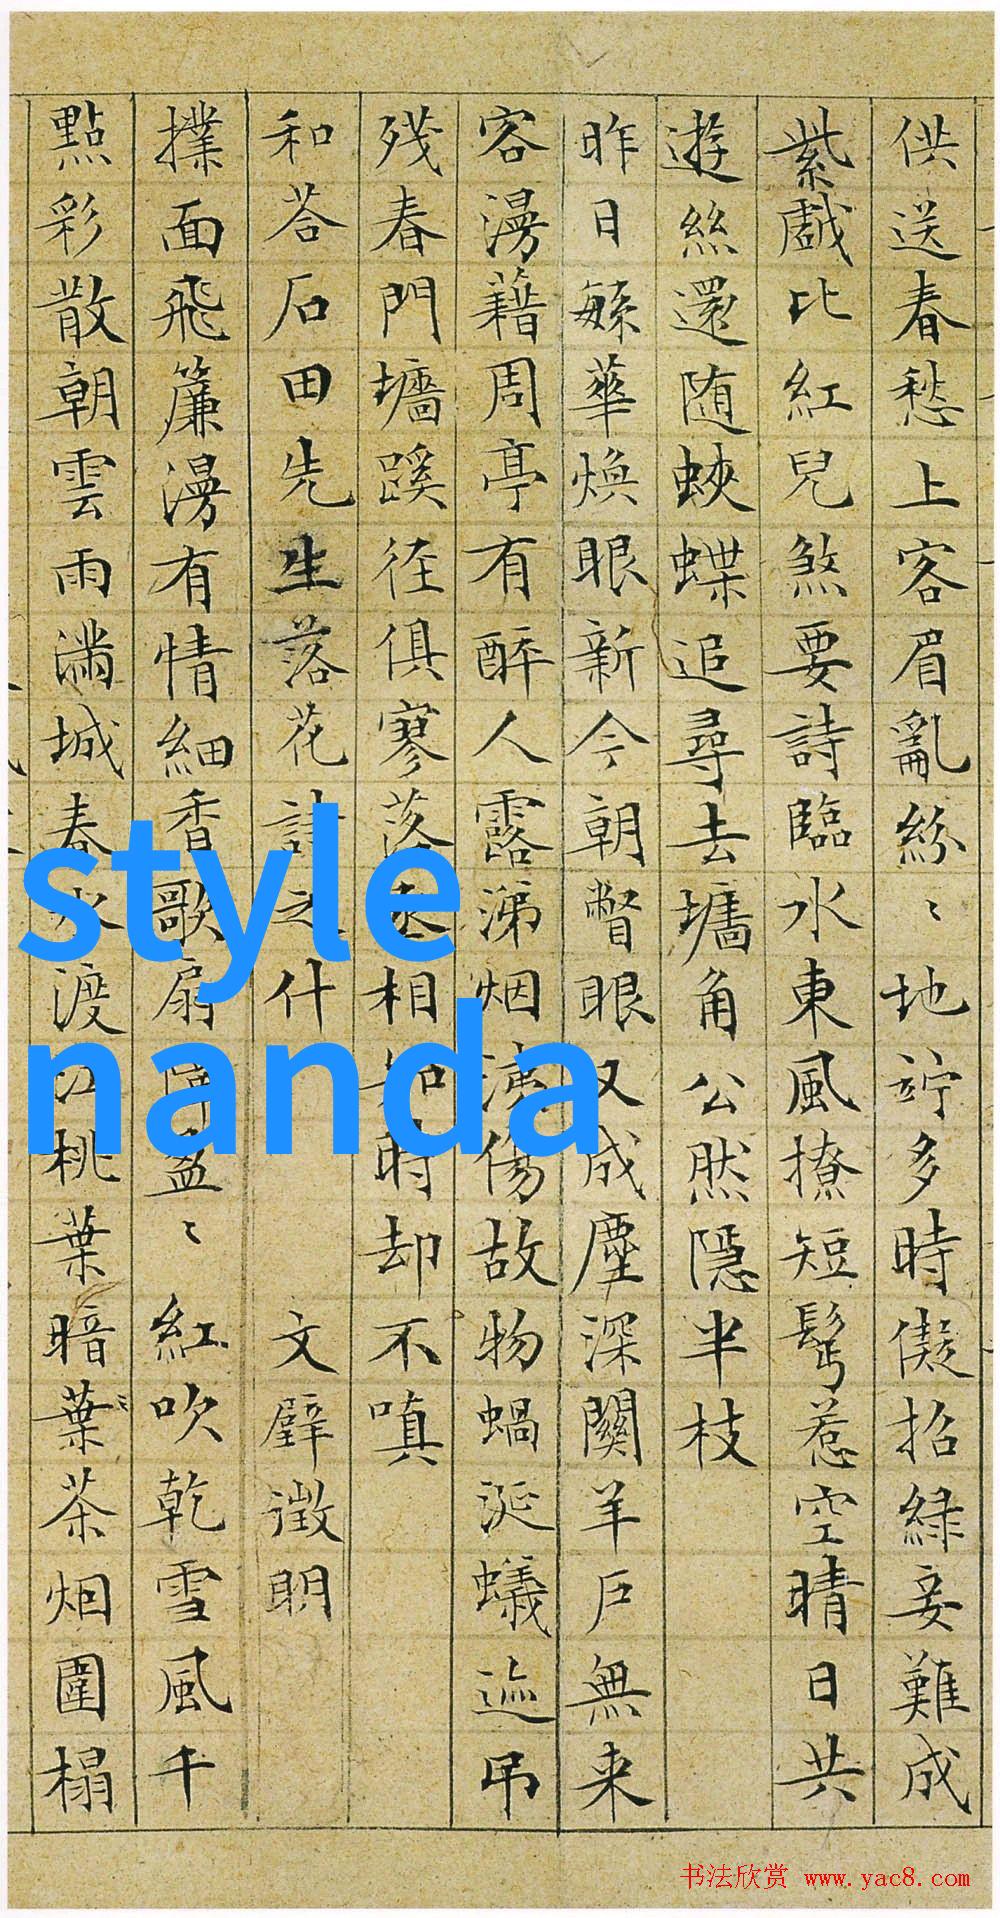 供送春愁上客眉亂紛〻地竚多時儗招綠妾難成
紫戲比紅兒煞要詩臨水東風撩短鬢惹空晴日共
遊絲還随蛺蝶追尋去墻角公然隱半枝
昨日繁華煥眼新今朝瞥眼又成塵深關羊戶無来
客漫藉周亭有醉人露涕烟洟傷故物蝸涎蟻迹吊
殘春門墻蹊徑俱寥落丞相知時却不嗔
和荅石田先生落花詩之什 文壁徵明
撲面飛簾漫有情細香歌扇障盈〻紅吹乾雪風千
點彩散朝雲雨滿城春水渡江桃葉暗葉茶烟圍榻
style
nanda
书法欣赏 www.yac8.com